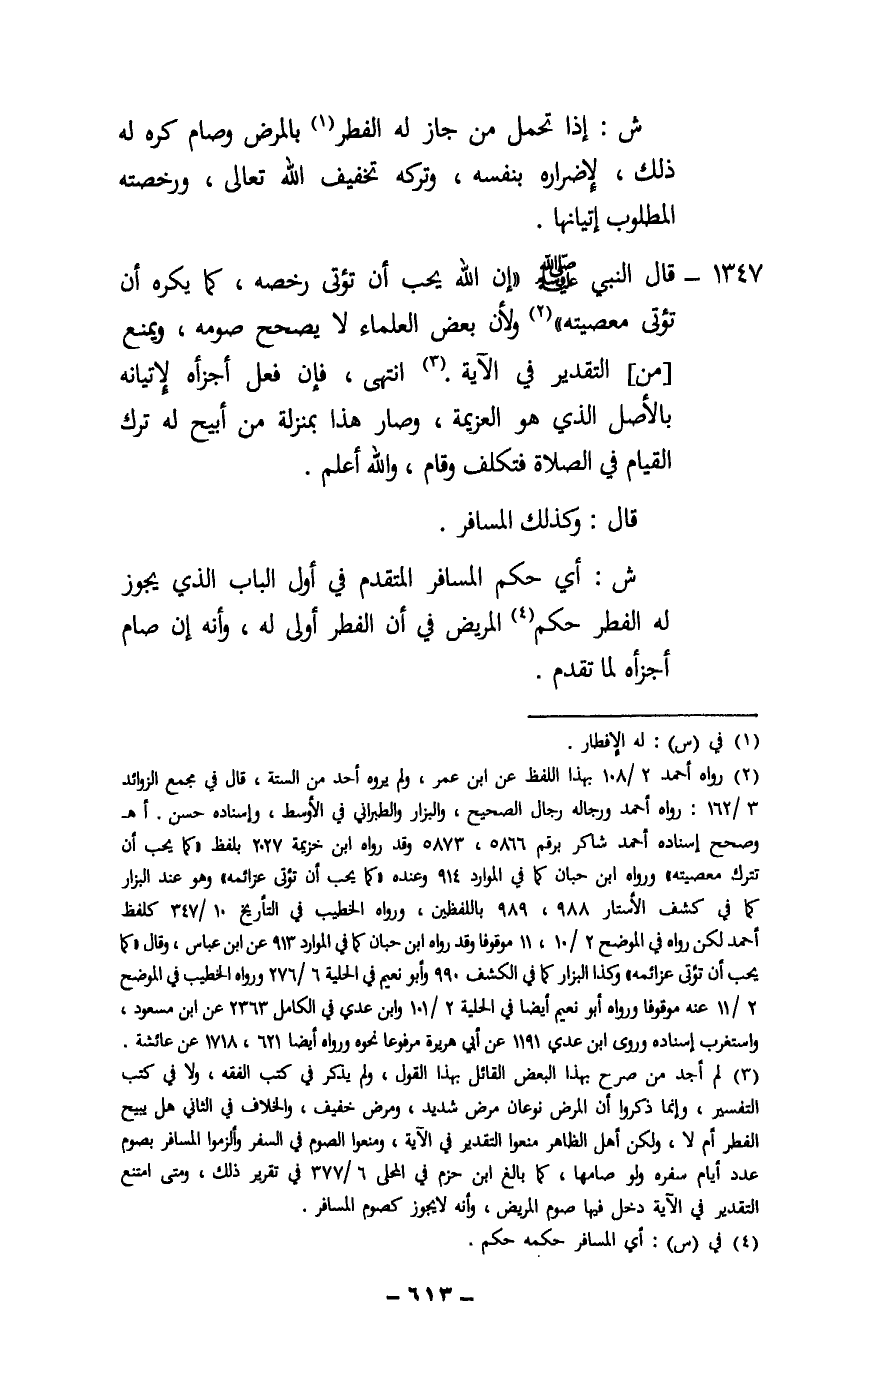 ش : إذا تحمل من جاز له الفطر(١) بالمرض وصام كره له
ذلك ، لإضراره بنفسه ، وتركه تخفيف الله تعالى ، ورخصته
المطلوب إتيانها .
١٣٤٧ – قال النبي ﷺ «إن الله يحب أن تؤتى رخصه ، كما يكره أن
تؤتى معصيته»(٢) ولأن بعض العلماء لا يصحح صومه ، ويمنع
[من] التقدير في الآية .(٣) انتهى ، فإن فعل أجزأه لإتيانه
بالأصل الذي هو العزيمة ، وصار هذا بمنزلة من أبيح له ترك
القيام في الصلاة فتكلف وقام ، والله أعلم .
قال : وكذلك المسافر .
ش : أي حكم المسافر المتقدم في أول الباب الذي يجوز
له الفطر حكم(٤) المريض في أن الفطر أولى له ، وأنه إن صام
أجزأه لما تقدم .
(١) في (س) : له الإفطار .
(٢) رواه أحمد ٢ /١٠٨ بهذا اللفظ عن ابن عمر ، ولم يروه أحد من الستة ، قال في مجمع الزوائد
٣ /١٦٢ : رواه أحمد ورجاله رجال الصحيح ، والبزار والطبراني في الأوسط ، وإسناده حسن . أ هـ
وصحح إسناده أحمد شاكر برقم ٥٨٦٦ ، ٥٨٧٣ وقد رواه ابن خزيمة ٢٠٢٧ بلفظ «كما يحب أن
تترك معصيته» ورواه ابن حبان كما في الموارد ٩١٤ وعنده «كما يحب أن تؤتى عزائمه» وهو عند البزار
كما في كشف الأستار ٩٨٨ ، ٩٨٩ باللفظين ، ورواه الخطيب في التأريخ ١٠ /٣٤٧ كلفظ
أحمد لكن رواه في الموضح ٢ /١٠ ، ١١ موقوفا وقد رواه ابن حبان كما في الموارد ٩١٣ عن ابن عباس ، وقال «كما
يحب أن تؤتى عزائمه» وكذا البزار كما في الكشف ٩٩٠ وأبو نعيم في الحلية ٦ /٢٧٦ ورواه الخطيب في الموضح
٢ /١١ عنه موقوفا ورواه أبو نعيم أيضا في الحلية ٢ /١٠١ وابن عدي في الكامل ٢٣٦٣ عن ابن مسعود ،
واستغرب إسناده وروى ابن عدي ١١٩١ عن أبي هريرة مرفوعا نحوه ورواه أيضا ٦٢١ ، ١٧١٨ عن عائشة .
(٣) لم أجد من صرح بهذا البعض القائل بهذا القول ، ولم يذكر في كتب الفقه ، ولا في كتب
التفسير ، وإنما ذكروا أن المرض نوعان مرض شديد ، ومرض خفيف ، والخلاف في الثاني هل يبيح
الفطر أم لا ، ولكن أهل الظاهر منعوا التقدير في الآية ، ومنعوا الصوم في السفر وألزموا المسافر بصوم
عدد أيام سفره ولو صامها ، كما بالغ ابن حزم في المحلى ٦ /٣٧٧ في تقرير ذلك ، ومتى امتنع
التقدير في الآية دخل فيها صوم المريض ، وأنه لايجوز كصوم المسافر .
(٤) في (س) : أي المسافر حكمه حكم .
– ٦١٣ –